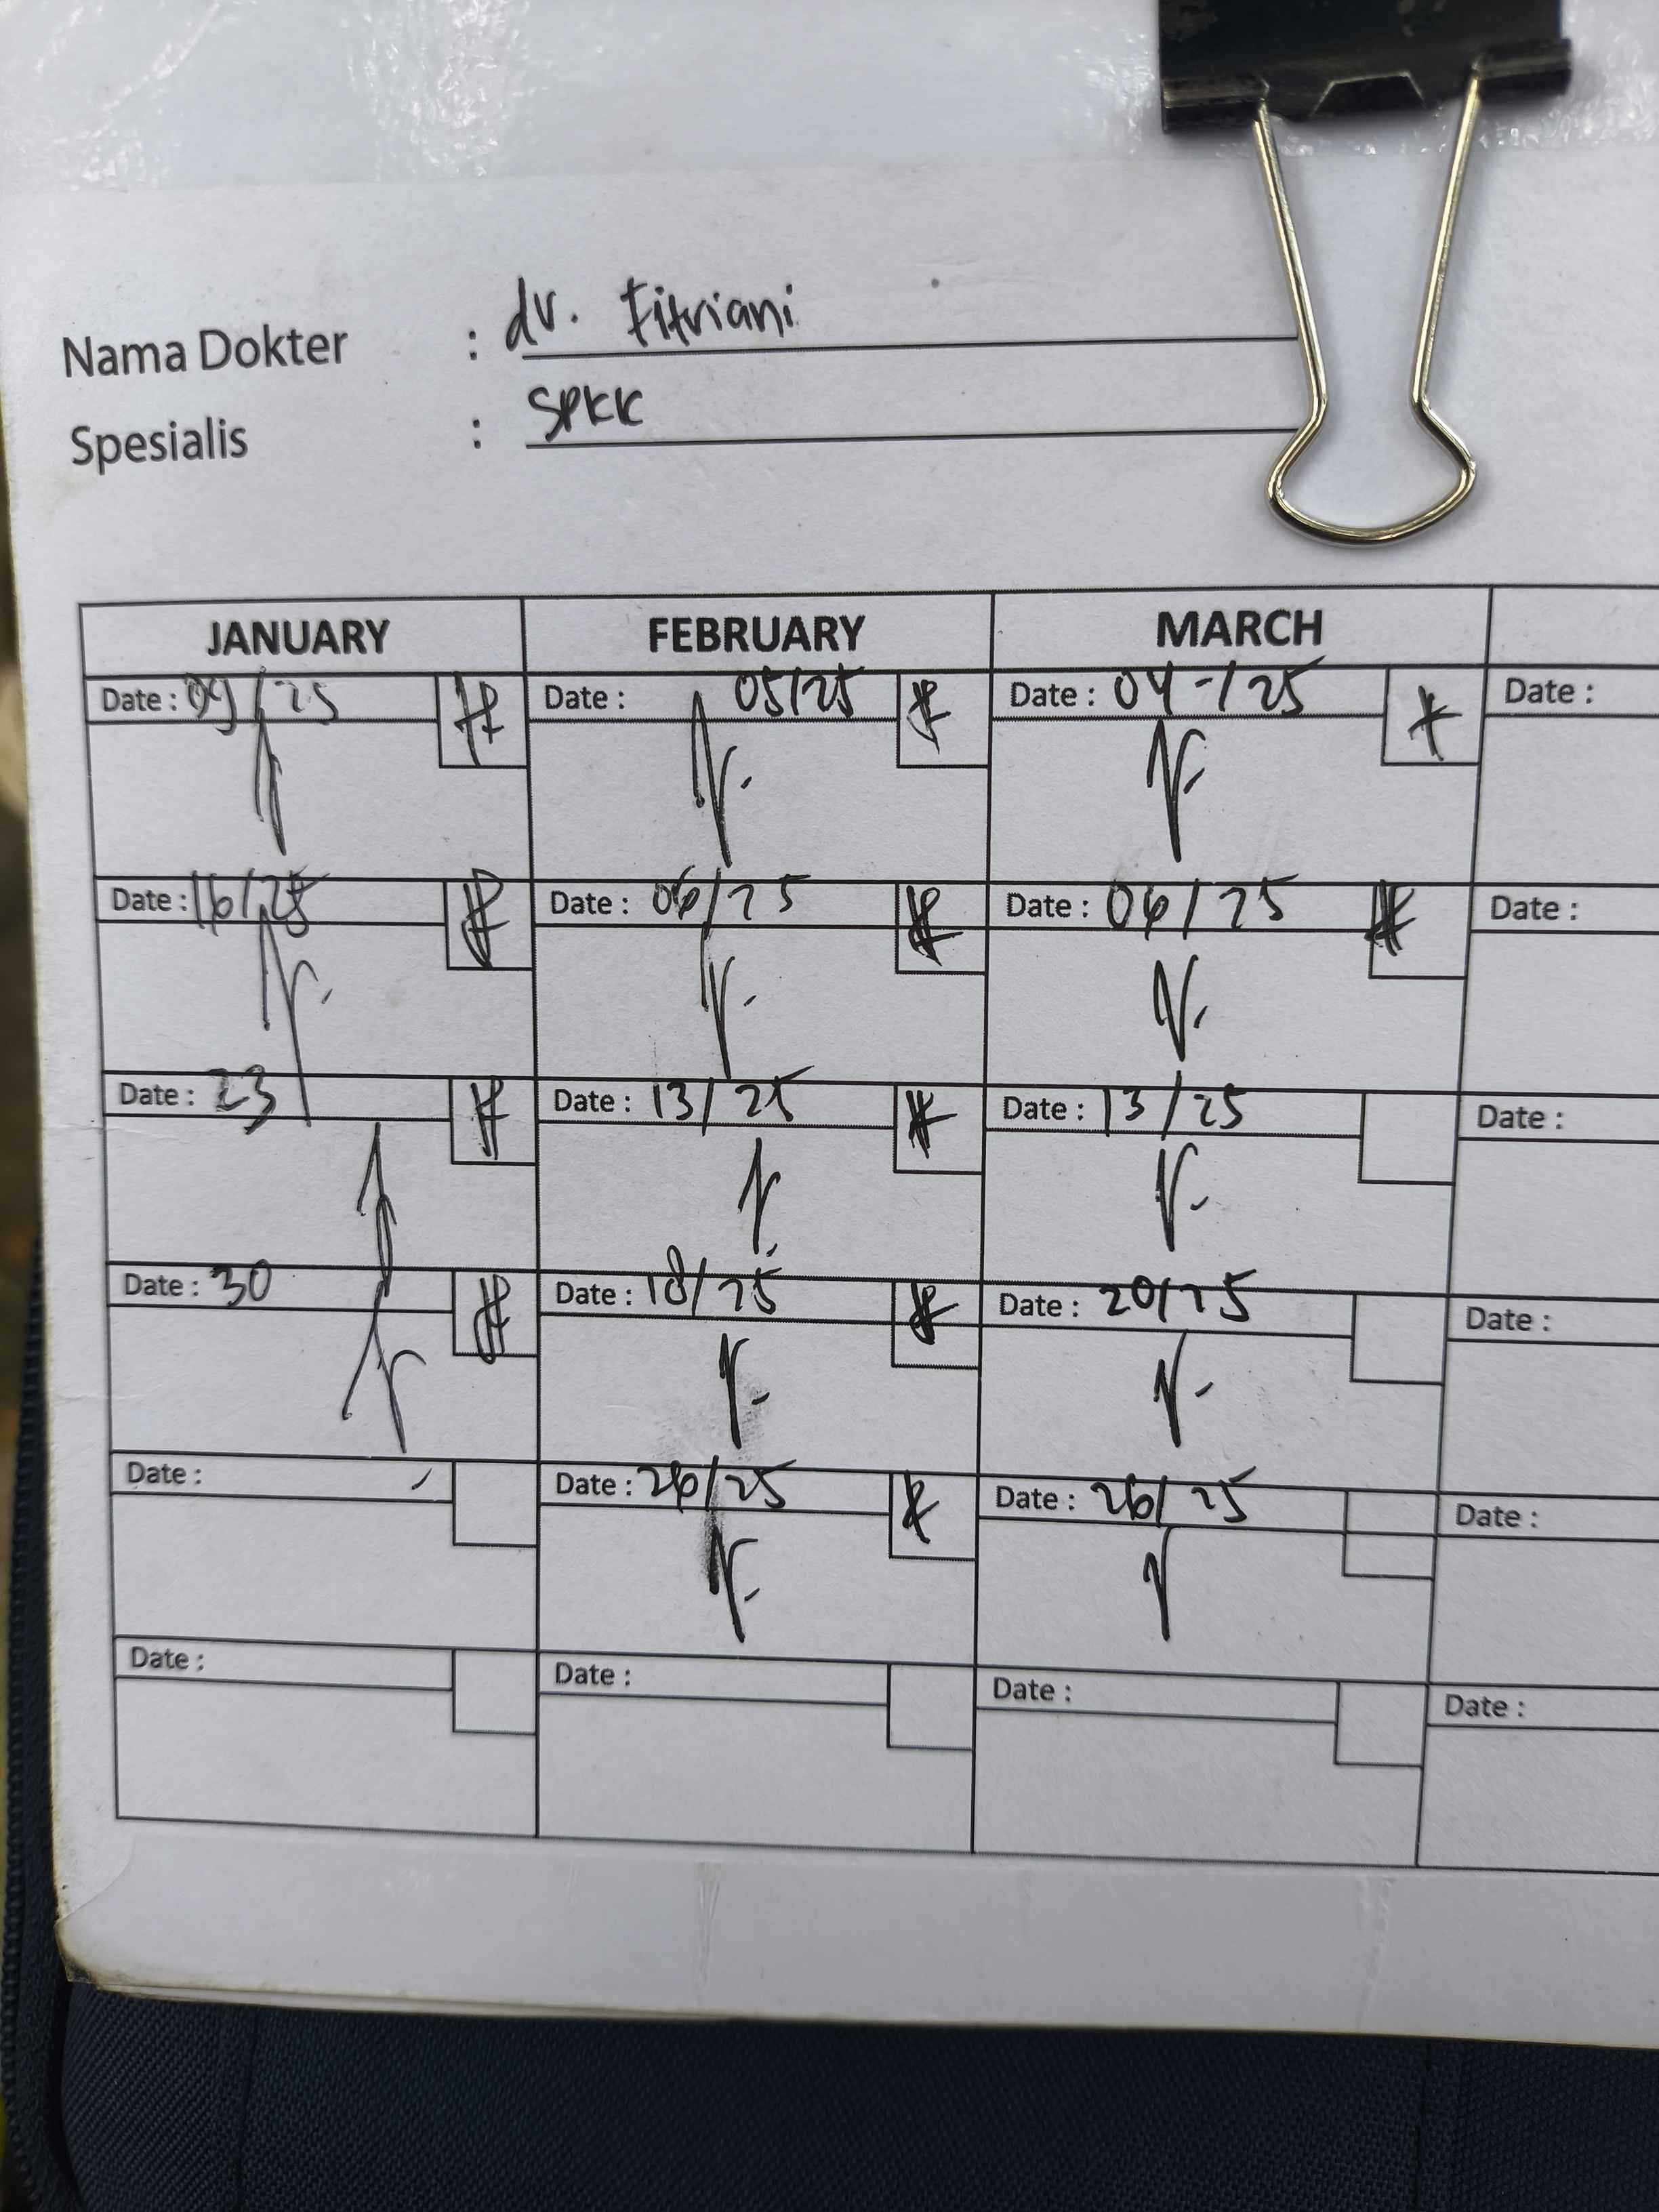 Nama Dokter : dr. Fitriani
Spesialis : SPKK
JANUARY FEBRUARY MARCH
Date : 09/25 Date : 05/25 Date : 04-/25 Date :
Date : 16/25 Date : 06/25 Date : 06/25 Date :
Date : 23 Date : 13/25 Date : 13/25 Date :
Date : 30 Date : 18/25 Date : 20/25 Date :
Date : Date : 26/25 Date : 26/25 Date :
Date : Date : Date : Date :